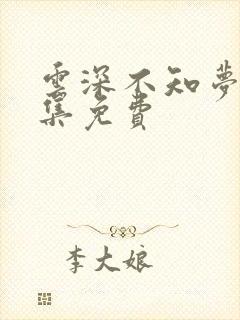 雲深不知夢
集免費
李大娘